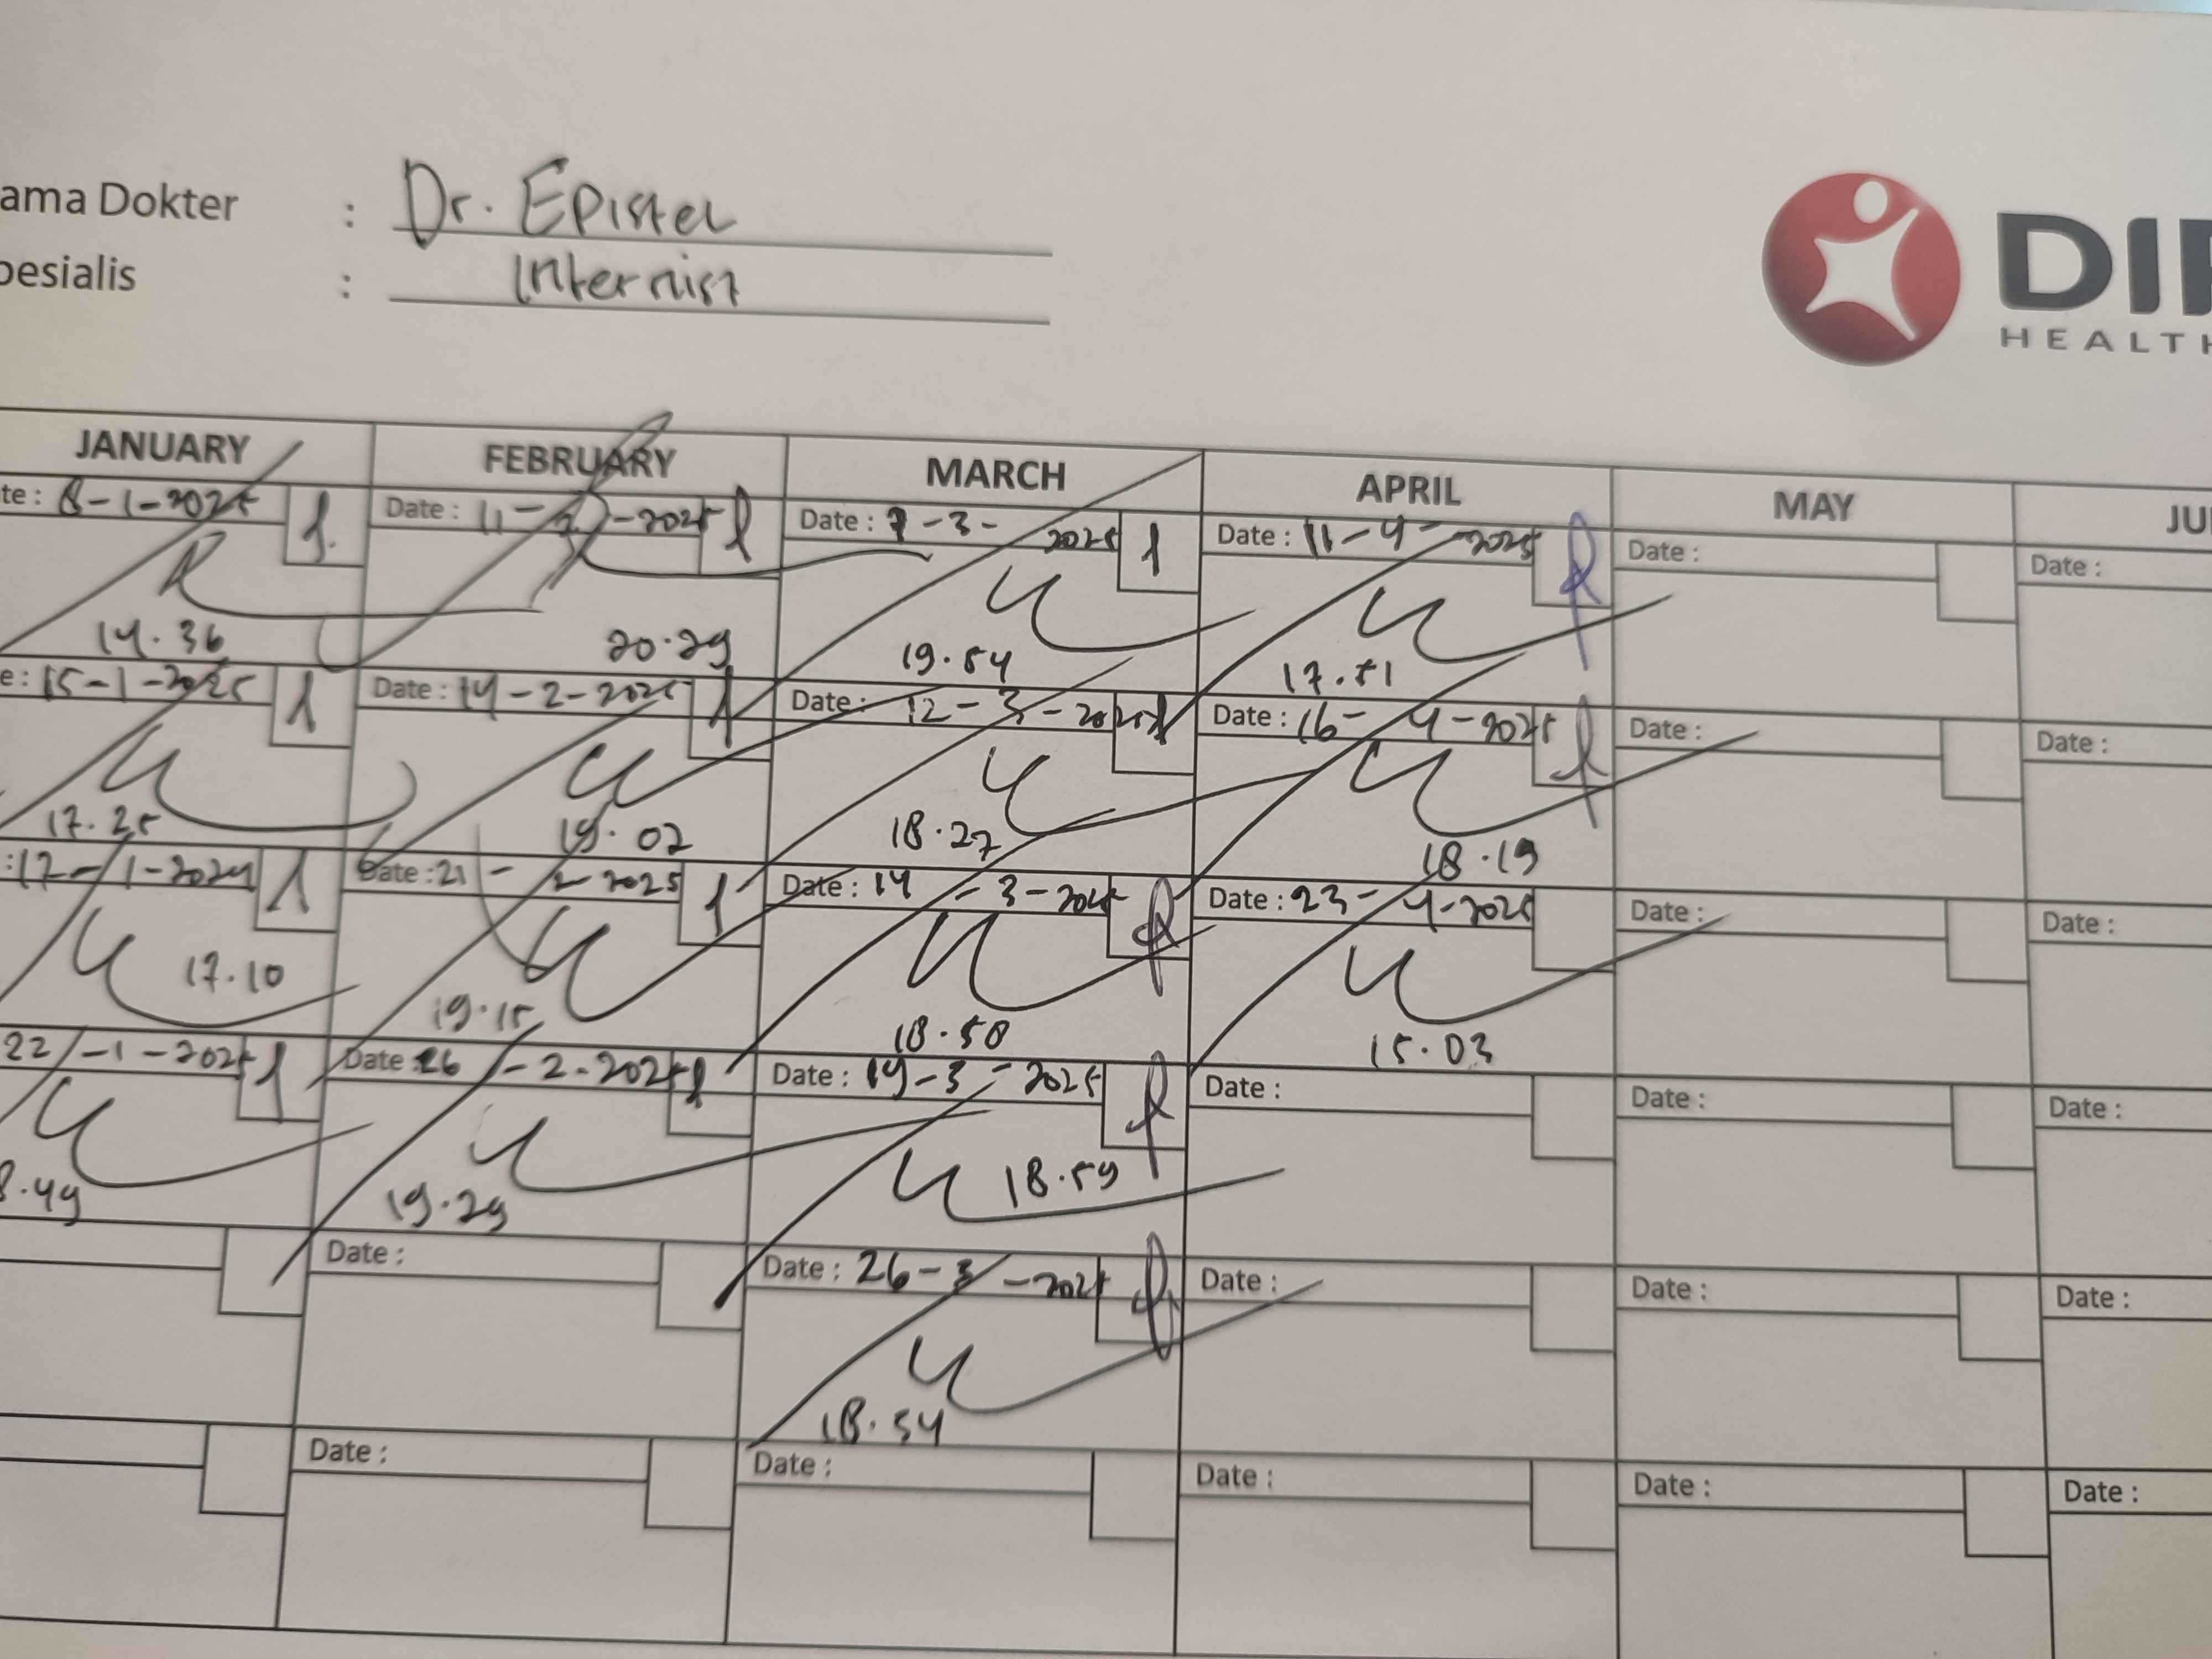 ama Dokter : Dr. Epistel
pesialis : Internist
DI
HEALTH
JANUARY FEBRUARY MARCH APRIL MAY JU
te: 8-1-2025 Date: 11-2-2025 Date: 7-3-2025 Date: 11-4-2025 Date: Date:
14.36 20.29 19.54 17.51
e: 15-1-2025 Date: 14-2-2025 Date: 12-3-2025 Date: 16-4-2025 Date: Date:
17.25 19.02 18.27 18.19
: 17-1-2024 Date: 21-2-2025 Date: 14-3-2025 Date: 23-4-2025 Date: Date:
17.10 19.15 18.50 15.03
22-1-2025 Date 26-2-2025 Date: 19-3-2025 Date: Date: Date:
8.49 19.29 18.59
Date: Date: 26-3-2025 Date: Date: Date:
18.54
Date: Date: Date: Date: Date: